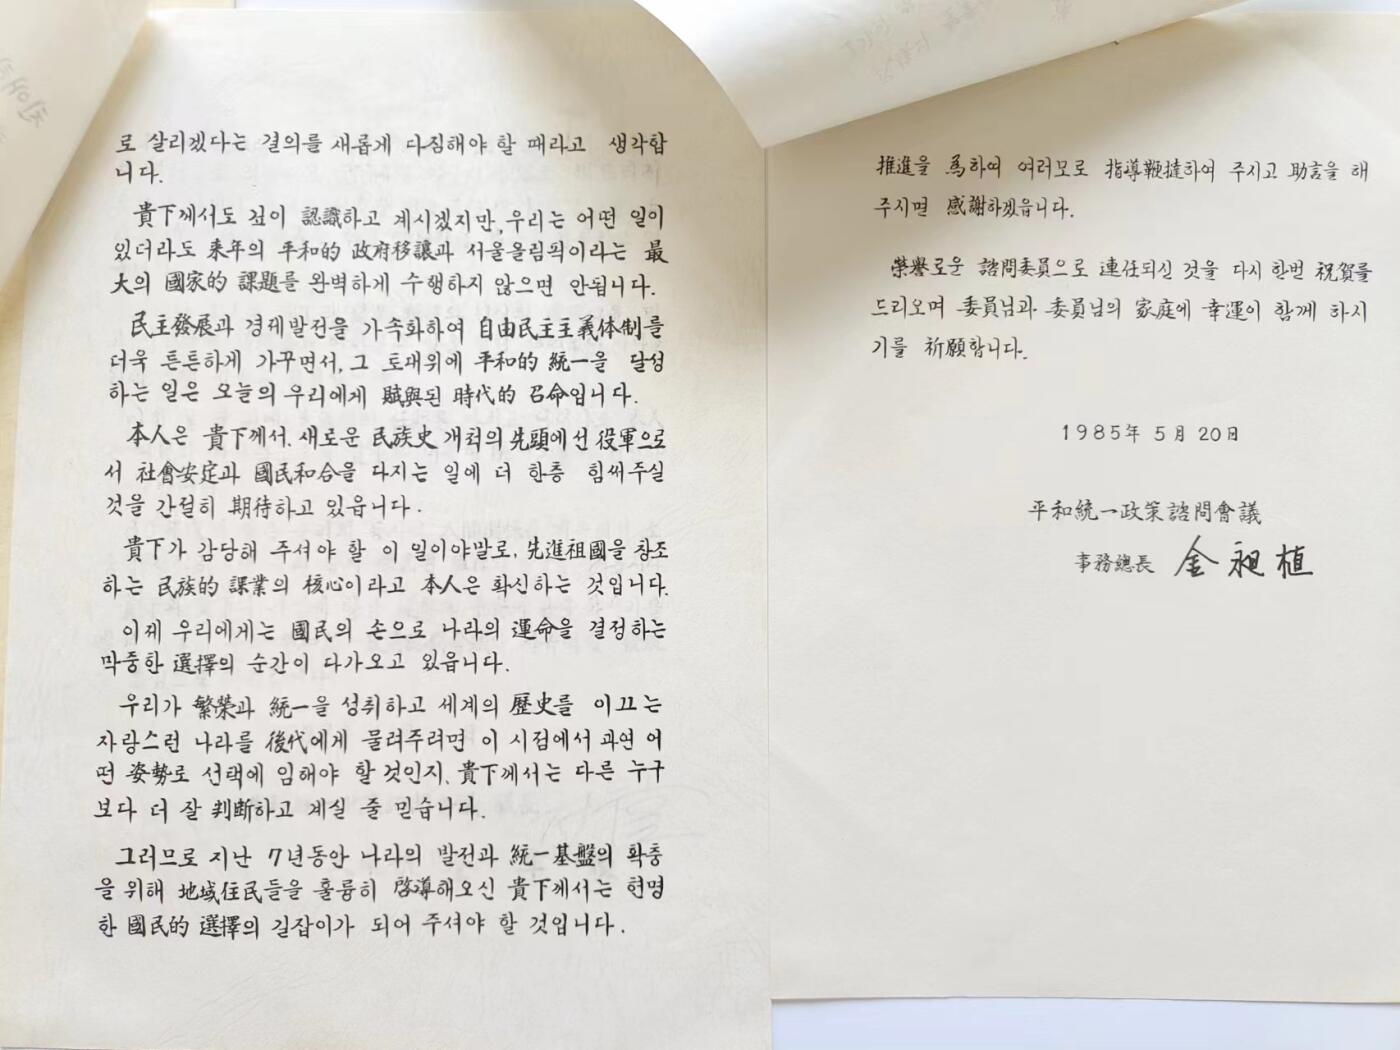 로 살리겠다는 결의를 새롭게 다짐해야 할 때라고 생각합
니다.
貴下께서도 깊이 認識하고 계시겠지만, 우리는 어떤 일이
있더라도 来年의 平和的 政府移讓과 서울올림픽이라는 最
大의 國家的 課題를 완벽하게 수행하지 않으면 안됩니다.
民主發展과 경제발전을 가속화하여 自由民主主義体制를
더욱 튼튼하게 가꾸면서, 그 토대위에 平和的 統一을 달성
하는 일은 오늘의 우리에게 賦與된 時代的 召命입니다.
本人은 貴下께서, 새로운 民族史 개척의 先頭에 선 役軍으로
서 社會安定과 國民和合을 다지는 일에 더 한층 힘써주실
것을 간절히 期待하고 있읍니다.
貴下가 감당해 주셔야 할 이 일이야말로, 先進祖國을 창조
하는 民族的 課業의 核心이라고 本人은 확신하는 것입니다.
이제 우리에게는 國民의 손으로 나라의 運命을 결정하는
막중한 選擇의 순간이 다가오고 있읍니다.
우리가 繁榮과 統一을 성취하고 세계의 歷史를 이끄는
자랑스런 나라를 後代에게 물려주려면 이 시점에서 과연 어
떤 姿勢로 선택에 임해야 할 것인지, 貴下께서는 다른 누구
보다 더 잘 判断하고 계실 줄 믿습니다.
그러므로 지난 7년동안 나라의 발전과 統一基盤의 확충
을 위해 地域住民들을 훌륭히 啓導해오신 貴下께서는 현명
한 國民的 選擇의 길잡이가 되어 주셔야 할 것입니다.
推進을 爲하여 여러모로 指導鞭撻하여 주시고 助言을 해
주시면 感謝하겠읍니다.
榮譽로운 諮問委員으로 連任되신 것을 다시 한번 祝賀를
드리오며 委員님과 委員님의 家庭에 幸運이 함께 하시
기를 祈願합니다.
1985年 5月 20日
平和統一政策諮問會議
事務總長 金昶植